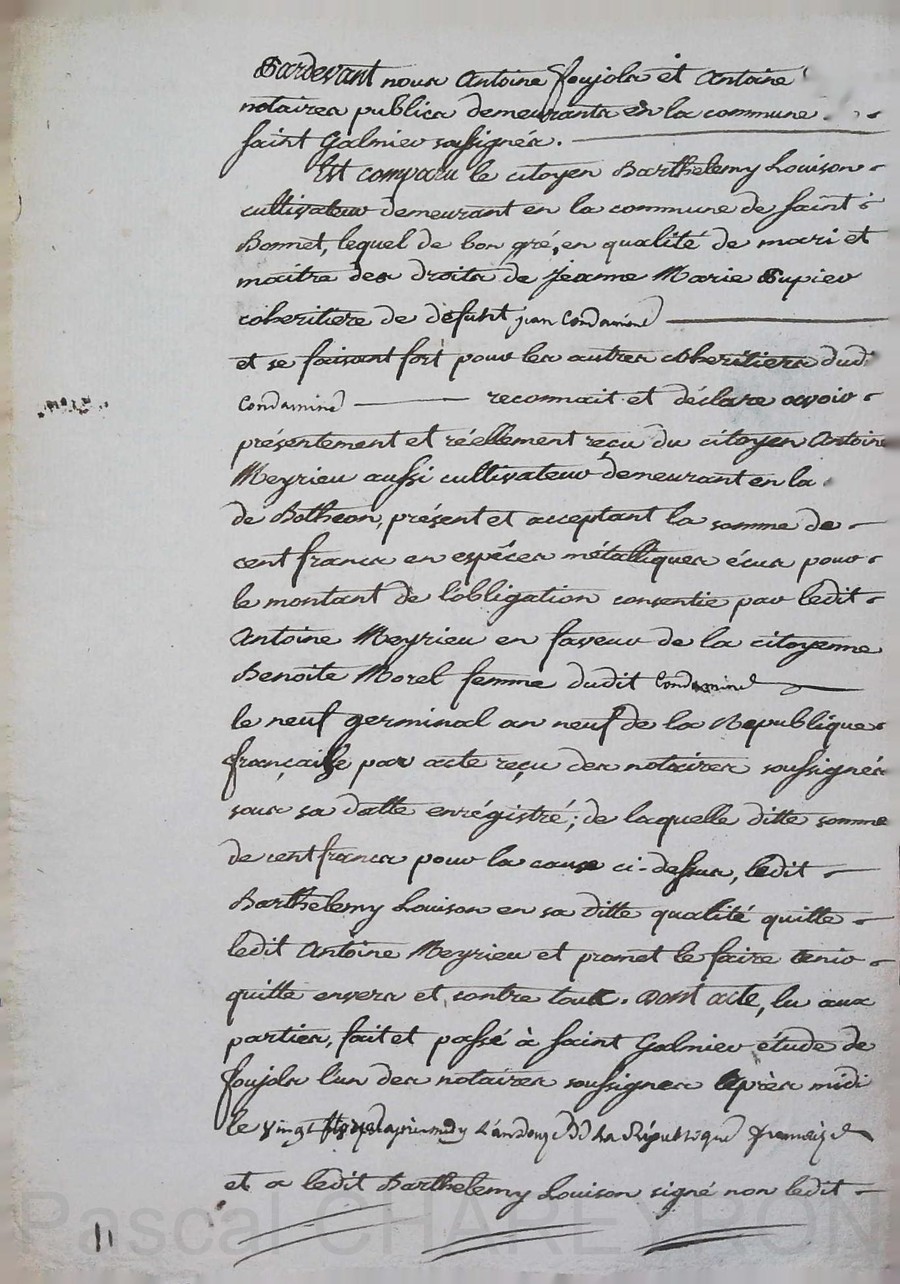 Pardevant nous Antoine foujols et Antoine
notaires publics demeurants en la commune
saint Galmier soussignés.
Est comparu le citoyen Barthelemy Louison
cultivateur demeurant en la commune de saint
Bonnet, lequel de bon gré, en qualité de mari et
maitre des droits de Jeanne Marie Dupier
coheritiere de défunt jean Condamine
et se faisant fort pour les autres coheritiers dud
Condamine reconnait et déclare avoir
présentement et réellement reçu du citoyen Antoine
Meyrieu aussi cultivateur demeurant en la
de Botheon, présent et acceptant la somme de
cent francs en espéces métalliques écus pour
le montant de l'obligation consentie par ledit
Antoine Meyrieu en faveur de la citoyenne
Benoite Morel femme dudit Condamine
le neuf germinal an neuf de la Republique
française par acte reçu des notaires soussignés
sous sa datte enrégistré; de laquelle ditte somme
de cent francs pour la cause ci-dessus, ledit
Barthelemy Louison en sa ditte qualité quitte
ledit Antoine Meyrieu et promet le faire tenir
quitte envers et contre tout. Dont acte, lu aux
parties, fait et passé à saint Galmier étude de
foujols l'un des notaires soussignes après midi
le vingt L'an douze De La République francaise
et a ledit Barthelemy Louison signé non ledit
11
Pascal CHAREYRON